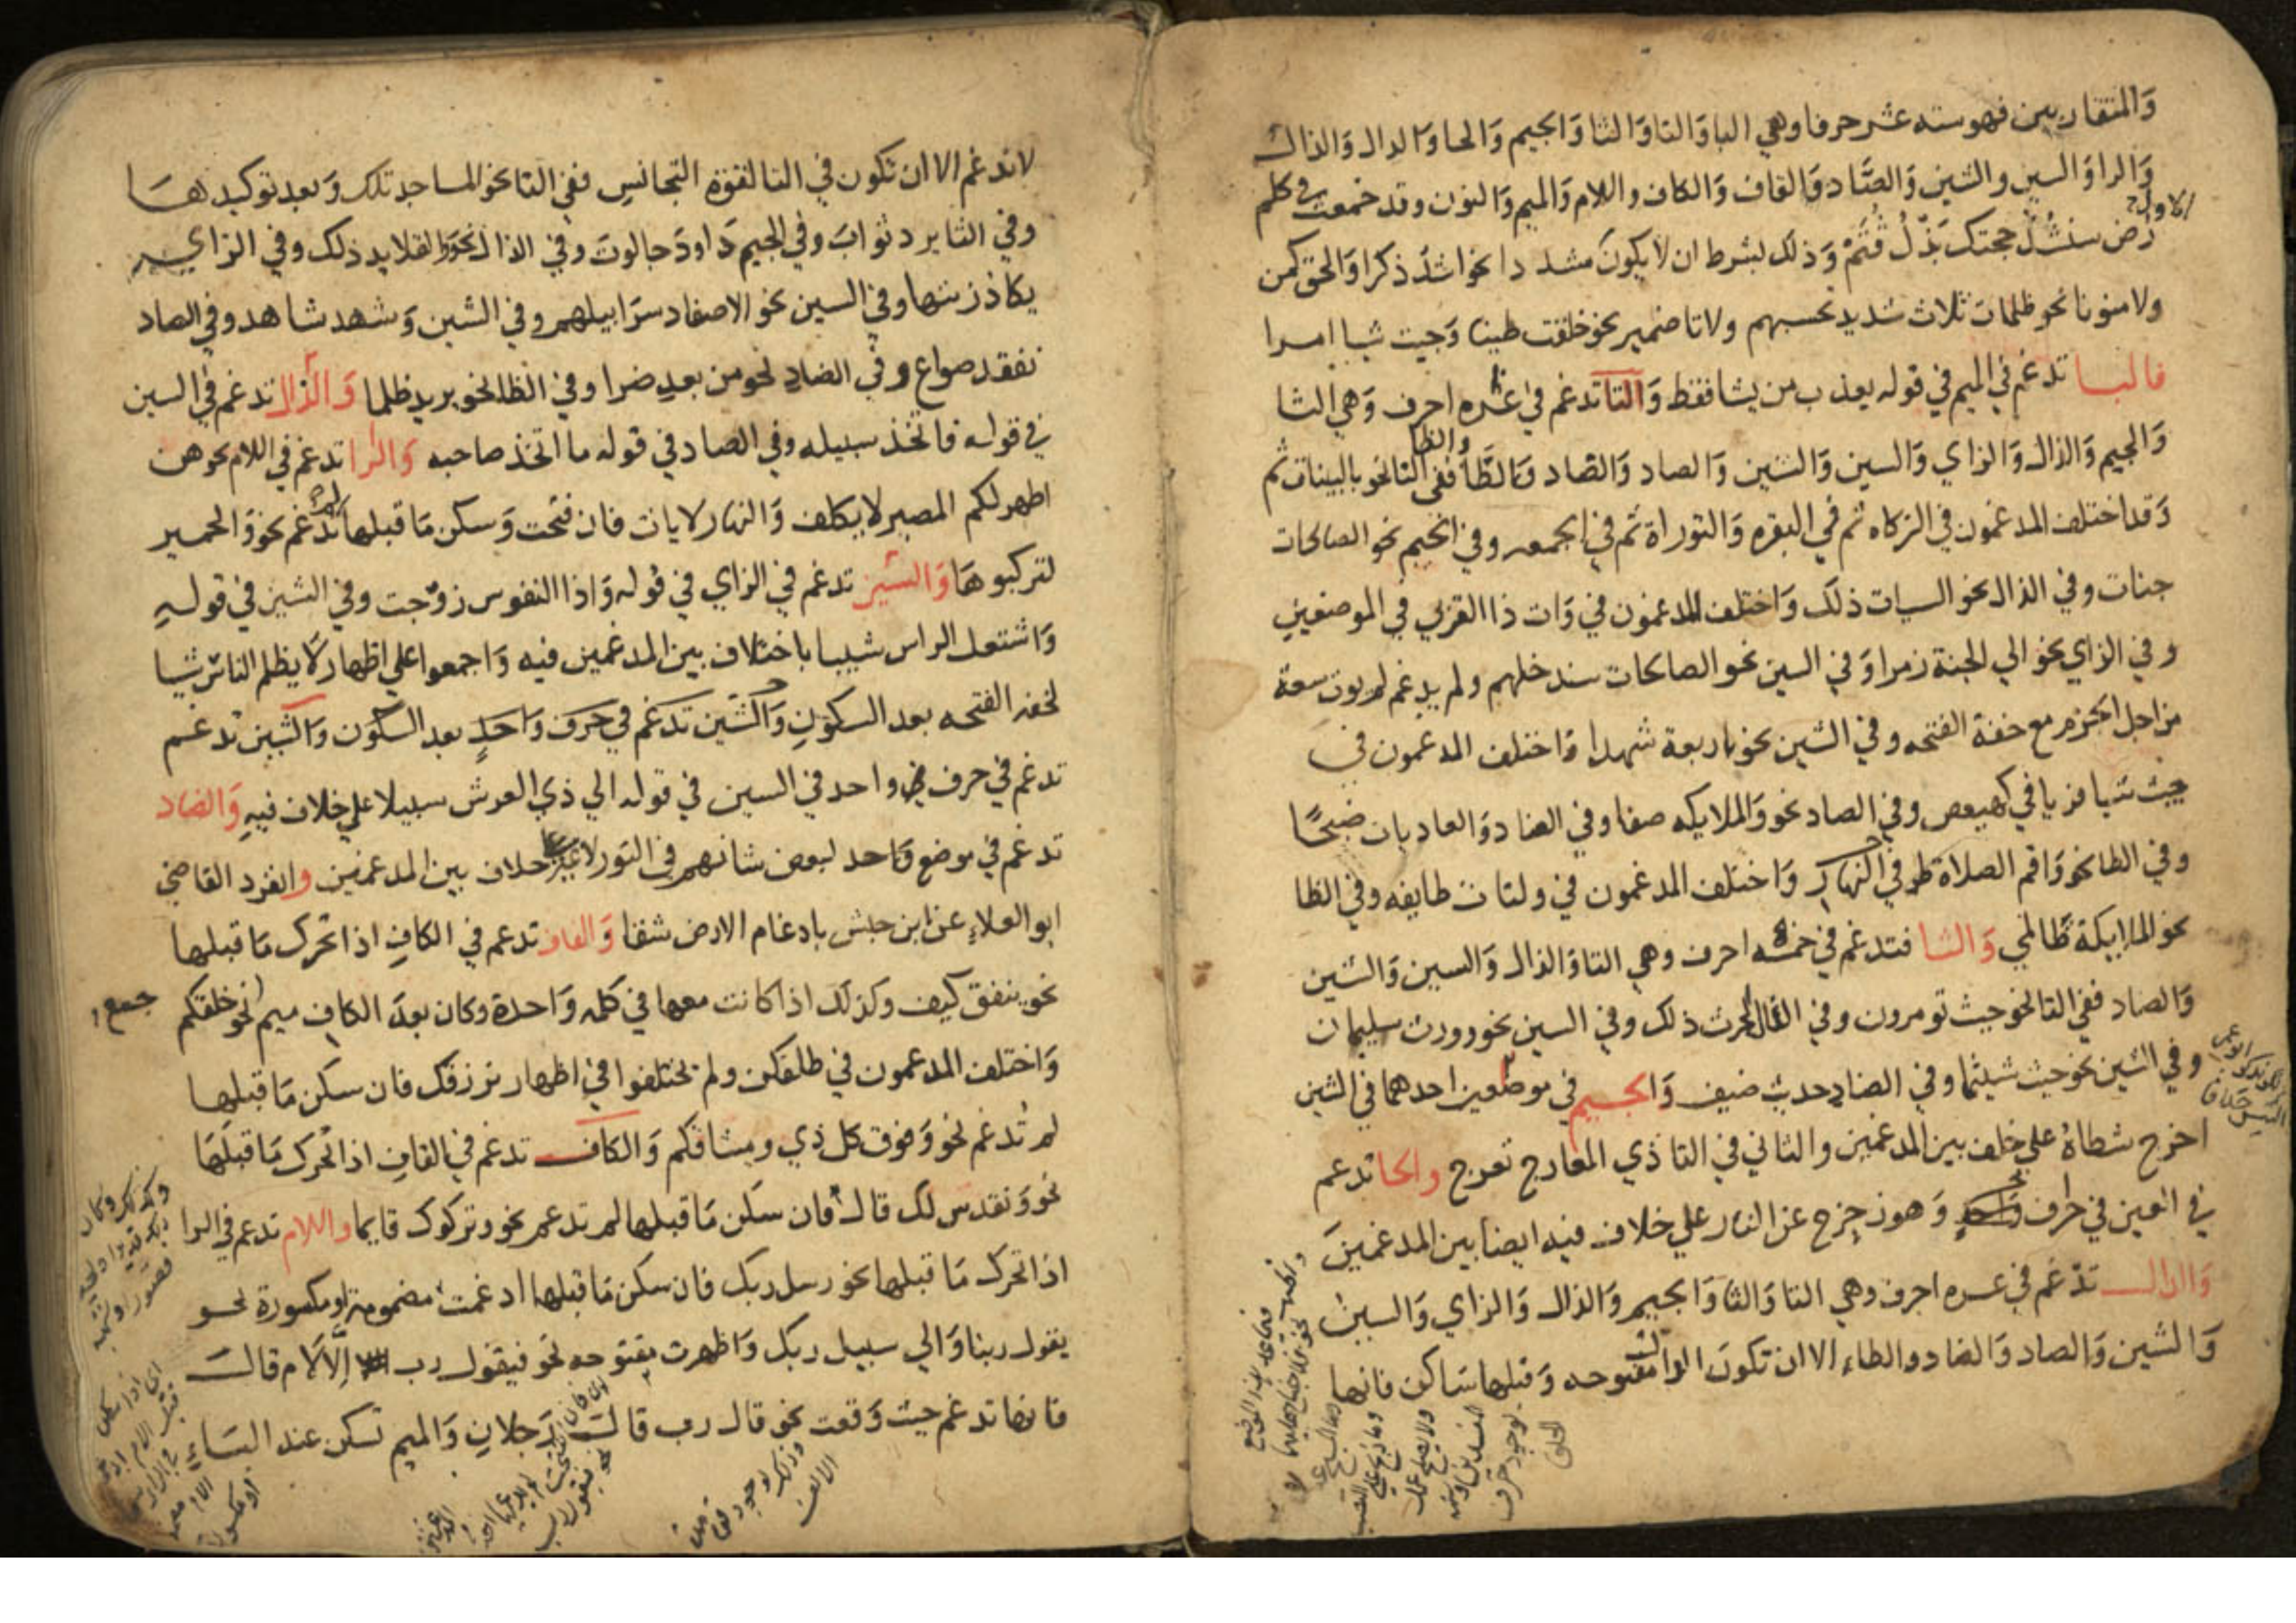 والمتقاربين فهو سته عشر حرفا وهي البا وَالتا وَالثا وَالجيم وَالحا وَالدال وَالذال
وَالرا وَالسين والشين وَالضاد وَالقاف وَالكاف واللام وَالميم وَالنون وقد جمعت في كلم
رُض سنشُدّ حجتك بَذلُ قُثَمْ وَذلك بشرط ان لا يكونَ مشددا نحو اشدّ ذكرا وَالحق كمن
ولا منونا نحو ظلمات ثلاث شديد تحسبهم ولا تا ضمير نحو خلقت طينا وَجيت شيا امرا
فالبا تدغم في الميم في قوله يعذب من يشا فقط وَالتا تدغم في عشره احرف وَهي الثا
وَالجيم وَالذال وَالزاي وَالسين وَالشين وَالصاد وَالضاد وَالطَّا والظا ففي الثا نحو بالبينات ثم
وَقد اختلف المدغمون في الزكاه ثم في البقره وَالتوراة ثم في الجمعه وفي الجيم نحو الصالحات
جنات وفي الذال نحو السيات ذلك وَاختلف المدغمون في وَات ذا القربي في الموضعين
وفي الزاي نحو الي الجنة زمرا وَفي السين نحو الصالحات سندخلهم ولم يدغم لم يوت سعة
من اجل الجزم مع خفة الفتحه وفي الشين نحو باربعة شهدا وَاختلف المدغمون في
جيت شيا فريا في كهيعص وفي الصاد نحو وَالملايكه صفا وفي الضاد وَالعاديات ضبحًا
وفي الطا نحو وَاقم الصلاة طرفي النهار وَاختلف المدغمون في ولتات طايفه وفي الظا
نحو الملايكة ظَالمي وَالثا فتدغم في خمسه احرف وهي التا وَالذال وَالسين وَالشين
وَالضاد ففي التا نحو حيث تومرون وفي الذال الحرث ذلك وفي السين نحو وورث سليمان
وفي الشين نحو حيث شيتما وفي الضاد حديث ضيف وَالجيم في موضعين احدهما في الشين
اخرج شطاهُ علي خلف بين المدغمين والثاني في التا ذي المعارج تعرج والحا تدغم
في العين في حرف وَهو زحزح عن النار علي خلاف فيه ايضا بين المدغمينَ
وَالدال تدغم في عشره احرف وهي التا وَالثا وَالجيم وَالذال وَالزاي وَالسين
وَالشين وَالصاد وَالضاد والظاء الا ان تكونَ الدال مفتوحه وَقبلها سَاكن فانها
لا تدغم الا ان تكون في التا لقوة التجانس ففي التا نحو المساجد تلك وَبعد توكيدها
وفي الثا يريد ثوابَ وفي الجيم دَاودَ جالوتَ وفي الذال نحو وَالقلايد ذلك وفي الزاي
يكاد زيتها وفي السين نحو الاصفاد سرَابيلهم وفي الشين وَشهد شاهد وفي الصاد
نفقد صواع وفي الضاد نحو من بعدِ ضرا وفي الظا نحو يريد ظلما وَالذال تدغم في السين
في قوله فاتخذ سبيله وفي الصاد في قوله ما اتخذ صاحبه وَالرا تدغم في اللام نحو هن
اطهر لكم المصير لا يكلف وَالنهار لايات فان فتحت وَسكن مَا قبلها لم تدغم نحو وَالحمير
لتركبوهَا وَالسين تدغم في الزاي في قوله وَاذا النفوس زوّجت وفي الشين في قولهِ
وَاشتعل الراس شيبا باختلاف بين المدغمين فيه وَاجمعوا علي اظهار لَا يظلم الناس شيا
لخفه الفتحه بعد السكونِ وَالشين تدغم في حرف وَاحدٍ بعد السكون وَالشين تدغم
تدغم في حرف واحد في السين في قوله الي ذي العرش سبيلا علي خلاف فيهِ وَالضاد
تدغم في موضع وَاحد لبعض شانهم في النور لا غير خلاف بين المدغمين وانفرد القاضي
ابو العلاءِ عن ابن حبش بادغام الارض شقا وَالقاف تدغم في الكافِ اذا تحرك مَا قبلها
نحو ينفق كيف وكذلك اذا كانت معها في كلمه وَاحدة وكان بعدَ الكاف ميم نحو خلقكم
جمع
وَاختلف المدغمون في طلقكن ولم يختلفوا في اظهار نرزقك فان سكن مَا قبلها
لم تُدغم نحو وَفوق كل ذي وميثاقكم وَالكاف تدغم في القافِ اذا تحرك مَا قبلَهَا
نحو وَنقدس لك قال فان سكن مَا قبلها لم تدغم نحو وتركوك قايما واللام تدغم في الرا
اذا تحرك مَا قبلها نحو رسل ربك فان سكن مَا قبلها ادغمت مضمومة او مكسورة نحو
يقول ربنا وَالي سبيل ربك وَاظهرت مفتوحه نحو فيقول رب اِلَّا لَام قالَ
فانها تدغم حيث وَقعت نحو قال رب قال رَجلانِ وَالميم تسكن عند البَاءِ